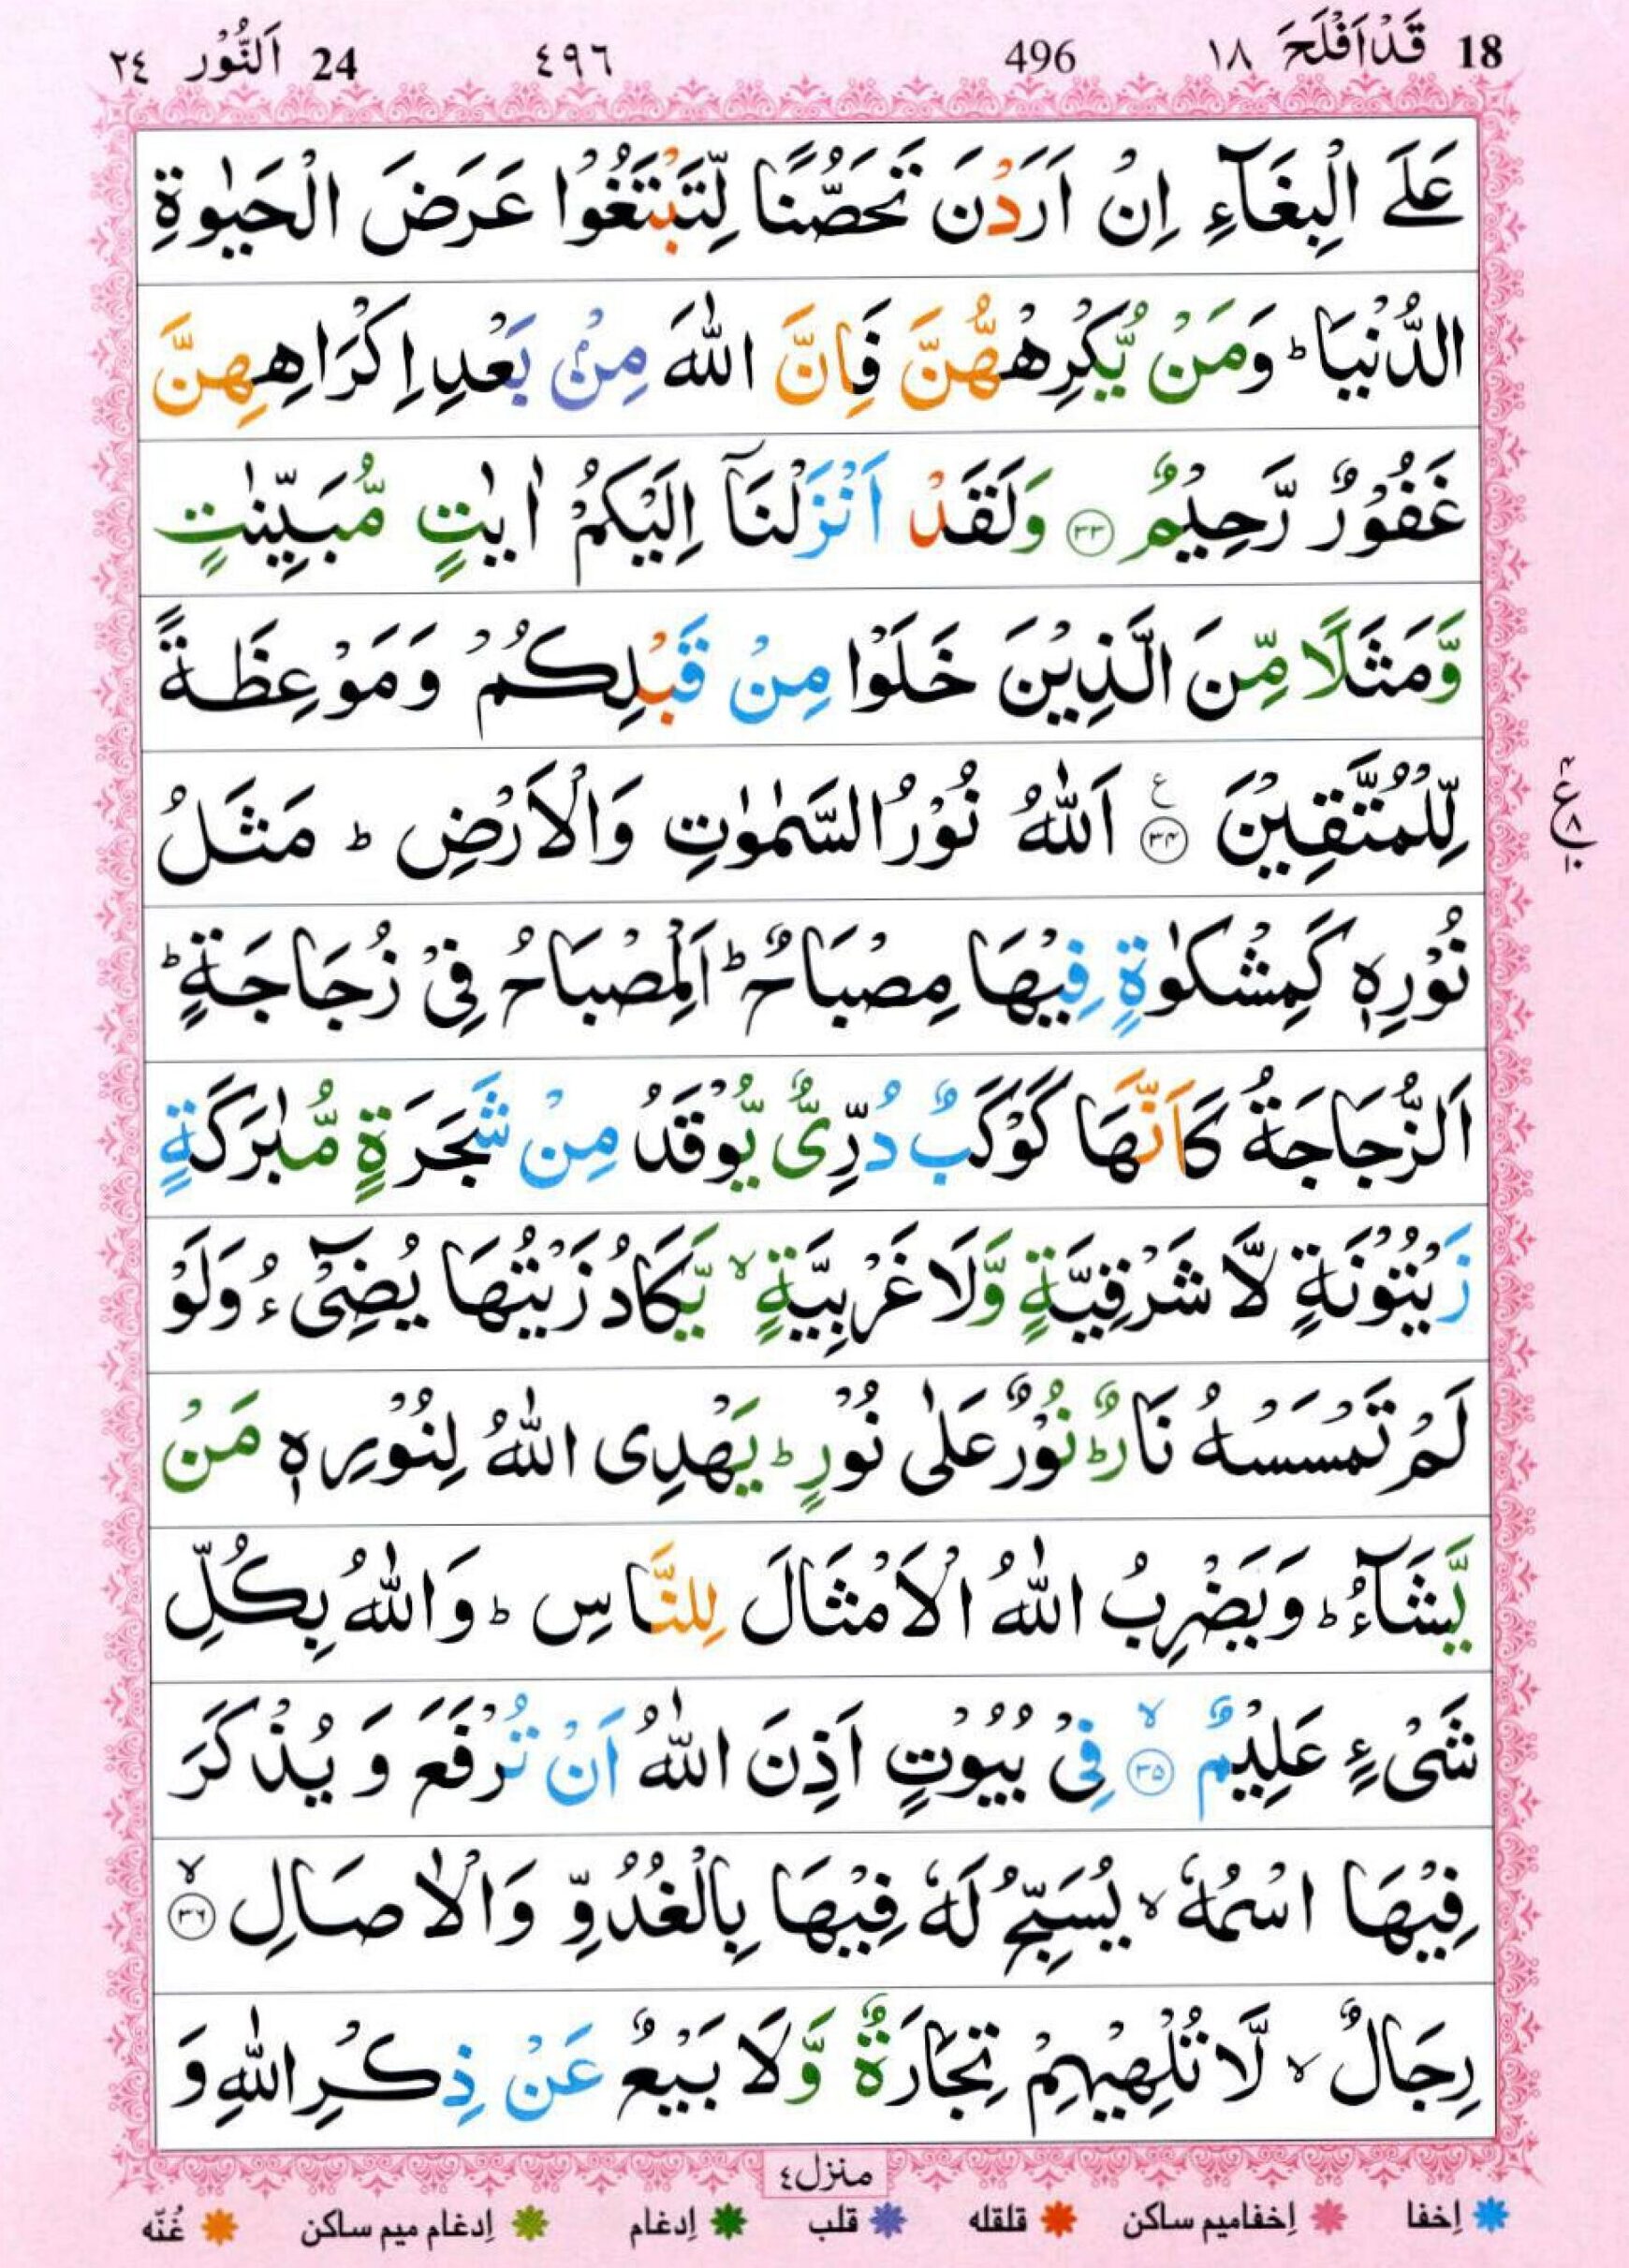 18 قَدْ اَفْلَحَ ١٨ 496 ٤٩٦ 24 اَلنُّوْر ٢٤
عَلَی الْبِغَآءِ اِنْ اَرَدْنَ تَحَصُّنًا لِّتَبْتَغُوْا عَرَضَ الْحَیٰوةِ
الدُّنْیَا ؕ وَمَنْ یُّكْرِهْهُّنَّ فَاِنَّ اللّٰهَ مِنْۢ بَعْدِ اِكْرَاهِهِنَّ
غَفُوْرٌ رَّحِیْمٌ ﴿۳۳﴾ وَلَقَدْ اَنْزَلْنَاۤ اِلَیْكُمْ اٰیٰتٍ مُّبَیِّنٰتٍ
وَّمَثَلًا مِّنَ الَّذِیْنَ خَلَوْا مِنْ قَبْلِكُمْ وَمَوْعِظَةً
لِّلْمُتَّقِیْنَ ﴿۳۴﴾ ع اَللّٰهُ نُوْرُ السَّمٰوٰتِ وَالْاَرْضِ ؕ مَثَلُ
ع ٤ ٨ ١٠
نُوْرِهٖ كَمِشْكٰوةٍ فِیْهَا مِصْبَاحٌ ؕ اَلْمِصْبَاحُ فِیْ زُجَاجَةٍ ؕ
اَلزُّجَاجَةُ كَاَنَّهَا كَوْكَبٌ دُرِّیٌّ یُّوْقَدُ مِنْ شَجَرَةٍ مُّبٰرَكَةٍ
زَیْتُوْنَةٍ لَّا شَرْقِیَّةٍ وَّلَا غَرْبِیَّةٍ ۙ یَّكَادُ زَیْتُهَا یُضِیْٓءُ وَلَوْ
لَمْ تَمْسَسْهُ نَارٌ ؕ نُوْرٌ عَلٰی نُوْرٍ ؕ یَهْدِی اللّٰهُ لِنُوْرِهٖ مَنْ
یَّشَآءُ ؕ وَیَضْرِبُ اللّٰهُ الْاَمْثَالَ لِلنَّاسِ ؕ وَاللّٰهُ بِكُلِّ
شَیْءٍ عَلِیْمٌ ﴿۳۵﴾ ۙ فِیْ بُیُوْتٍ اَذِنَ اللّٰهُ اَنْ تُرْفَعَ وَ یُذْكَرَ
فِیْهَا اسْمُهٗ ۙ یُسَبِّحُ لَهٗ فِیْهَا بِالْغُدُوِّ وَالْاٰصَالِ ﴿۳۶﴾ ۙ
رِجَالٌ ۙ لَّا تُلْهِیْهِمْ تِجَارَةٌ وَّلَا بَیْعٌ عَنْ ذِكْرِ اللّٰهِ وَ
منزل٤
إخفا إخفامیم ساكن قلقله قلب إدغام إدغام میم ساكن غُنّه